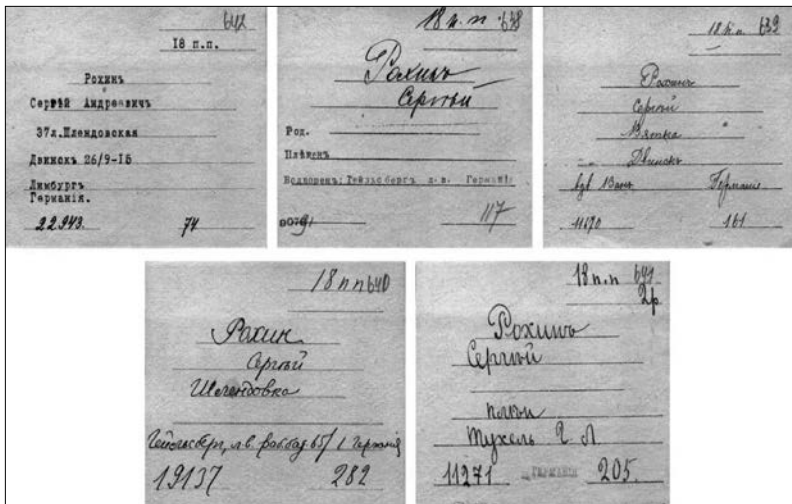 642
18 п.п.
Рохинъ
Сергѣй Андреевичъ
37л.Шлендовская
Двинскъ 26/9-15
Лимбургъ
Германія.
22943.
74
18 п.п 638
Рохинъ
Сергѣй
Род.
Плѣненъ
Водворенъ: Гейльсбергъ л.в. Германія
117
18 п.п. 639
Рохинъ
Сергѣй
Вятка
Двинскъ
Германія
11670
161
18 п п 640
Рохин
Сергѣй
Шлендовка
Гейльсберг, л.в.
Германія
19137
282
18 п.п 641
2р.
Рохинъ
Сергѣй
плѣн
Тухель
11271
ГЕРМАНІЯ
205.